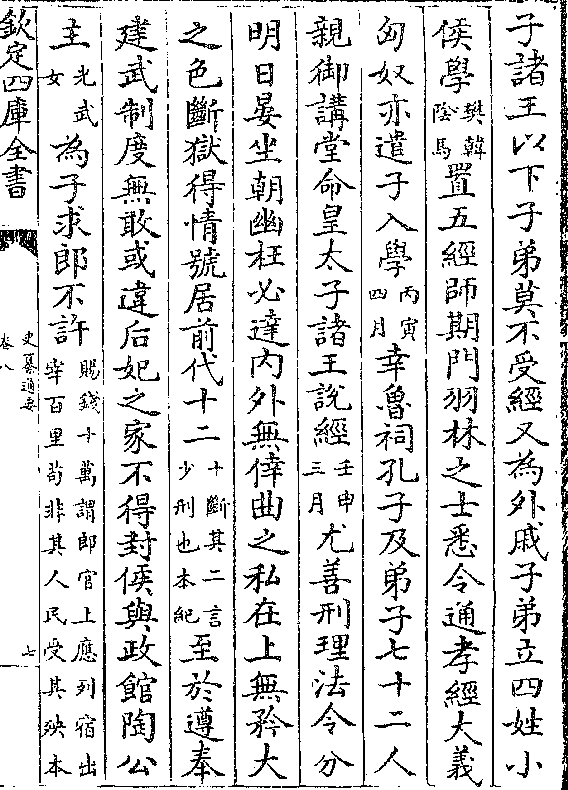 子諸王以下子弟莫不受經又為外戚子弟立四姓小
侯學樊韓陰馬置五經師期門羽林之士悉令通孝經大義
匈奴亦遣子入學丙寅四月幸魯祠孔子及弟子七十二人
親御講堂命皇太子諸王說經壬申三月尤善刑理法令分
明日晏坐朝幽枉必達內外無倖曲之私在上無矜大
之色斷獄得情號居前代十二十斷其二言少刑也本紀至於遵奉
建武制度無敢或違后妃之家不得封侯與政館陶公
主光武女為子求郎不許賜錢十萬謂郎官上應列宿出宰百里茍非其人民受其殃本
欽定四庫全書
史纂通要
卷八
七